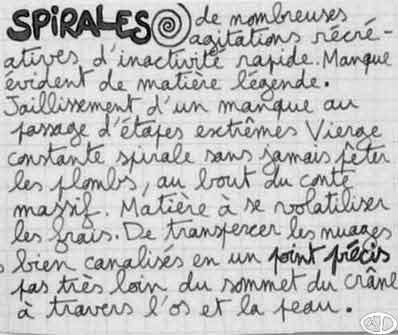 SPiRALES de nombreuses
agitations récré-
atives d'inactivité rapide. Manque
évident de matière légende.
Jaillissement d'un manque au
passage d'étapes extrêmes Vierge
constante spirale sans jamais pêter
les plombs, au bout du conte
massif. Matière à se volatiliser
les frais. De transpercer les nuages
bien canalisés en un point précis
pas très loin du sommet du crâne
à travers l'os et la peau.